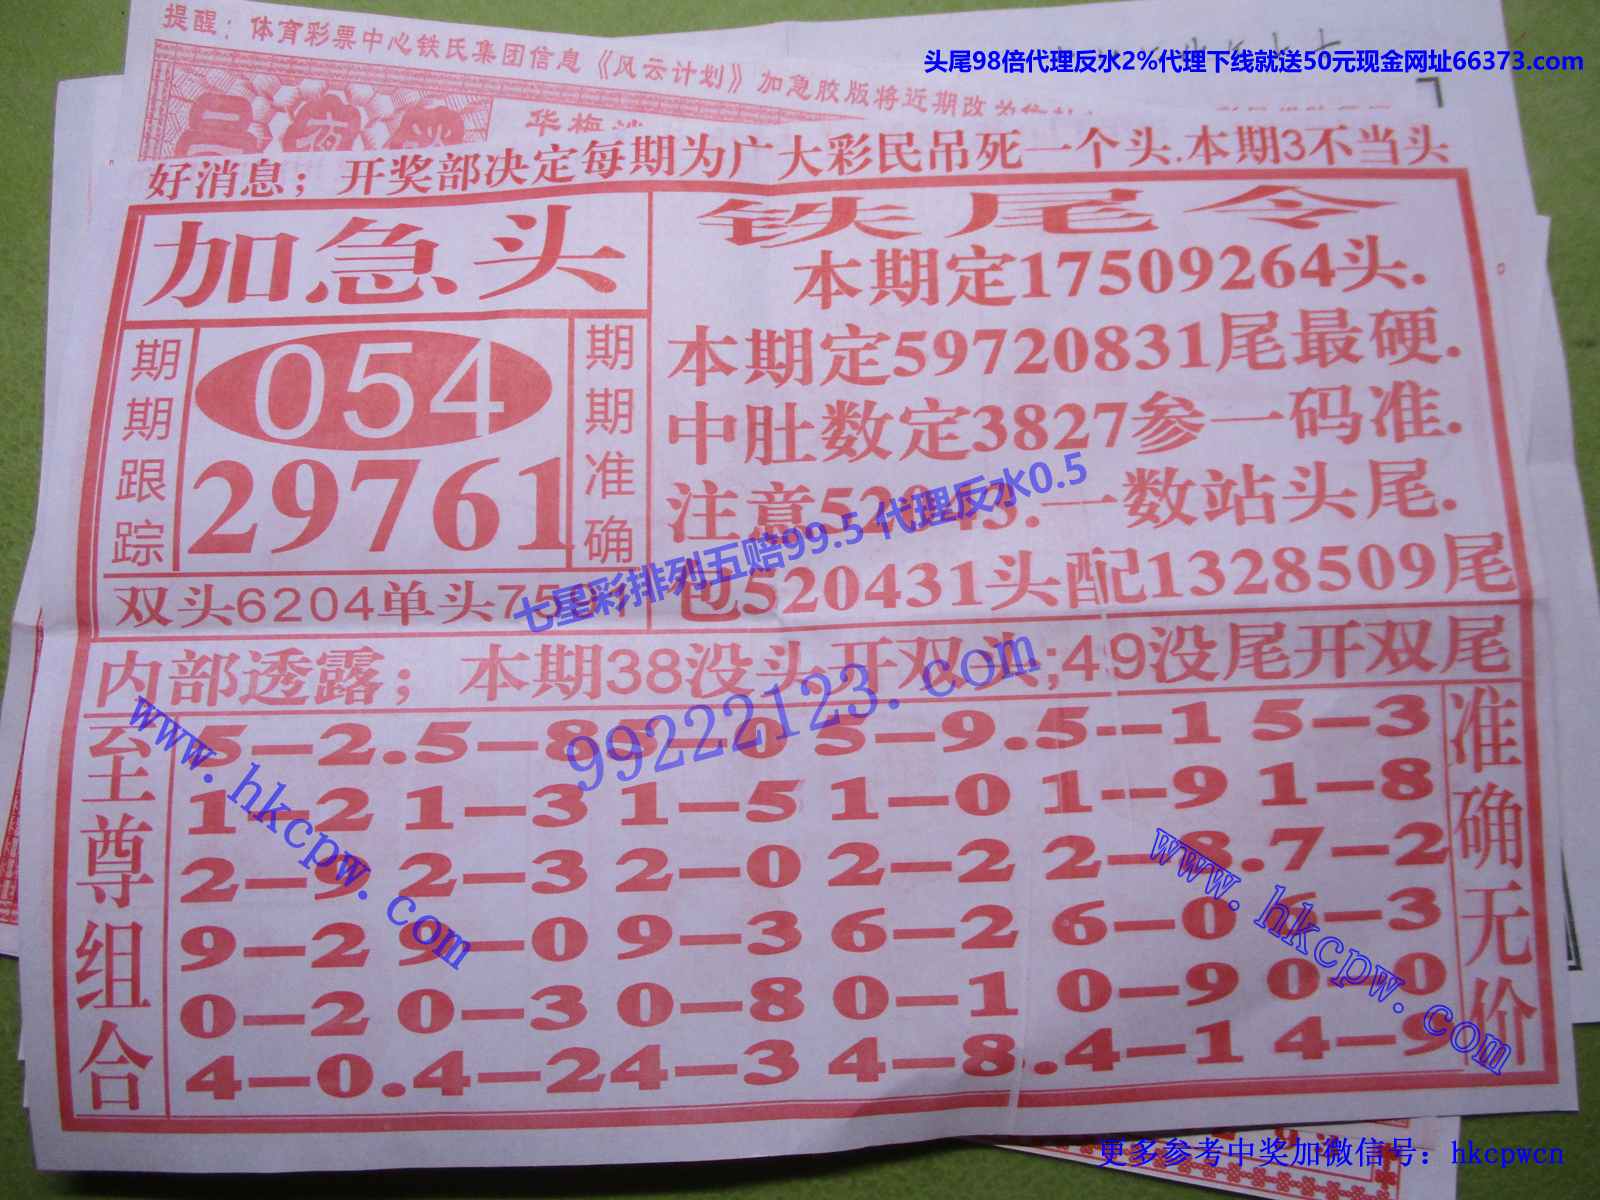 提醒：体育彩票中心铁氏集团信息《风云计划》加急胶版将近期改为
头尾98倍代理反水2%代理下线就送50元现金网址66373.com
华梅
好消息；开奖部决定每期为广大彩民吊死一个头.本期3不当头
加急头
期期跟踪
054
29761
期期准确
双头6204单头75
铁尾令
本期定17509264头.
本期定59720831尾最硬.
中肚数定3827参一码准.
注意52 3.一数站头尾.
包520431头配1328509尾
七星彩排列五赔99.5 代理反水0.5
内部透露；本期38没头开双头;49没尾开双尾
99222123.com
至尊组合
5—2.5—8 5—0 5—9.5--1 5—3
1—2 1—3 1—5 1—0 1--9 1—8
2—9 2—3 2—0 2—2 2—8.7—2
9—2 9—0 9—3 6—2 6—0 6—3
0—2 0—3 0—8 0—1 0—9 0—0
4—0.4—2 4—3 4—8.4—1 4—9
准确无价
www.hkcpw.com
www.hkcpw.com
更多参考中奖加微信号：hkcpwcn